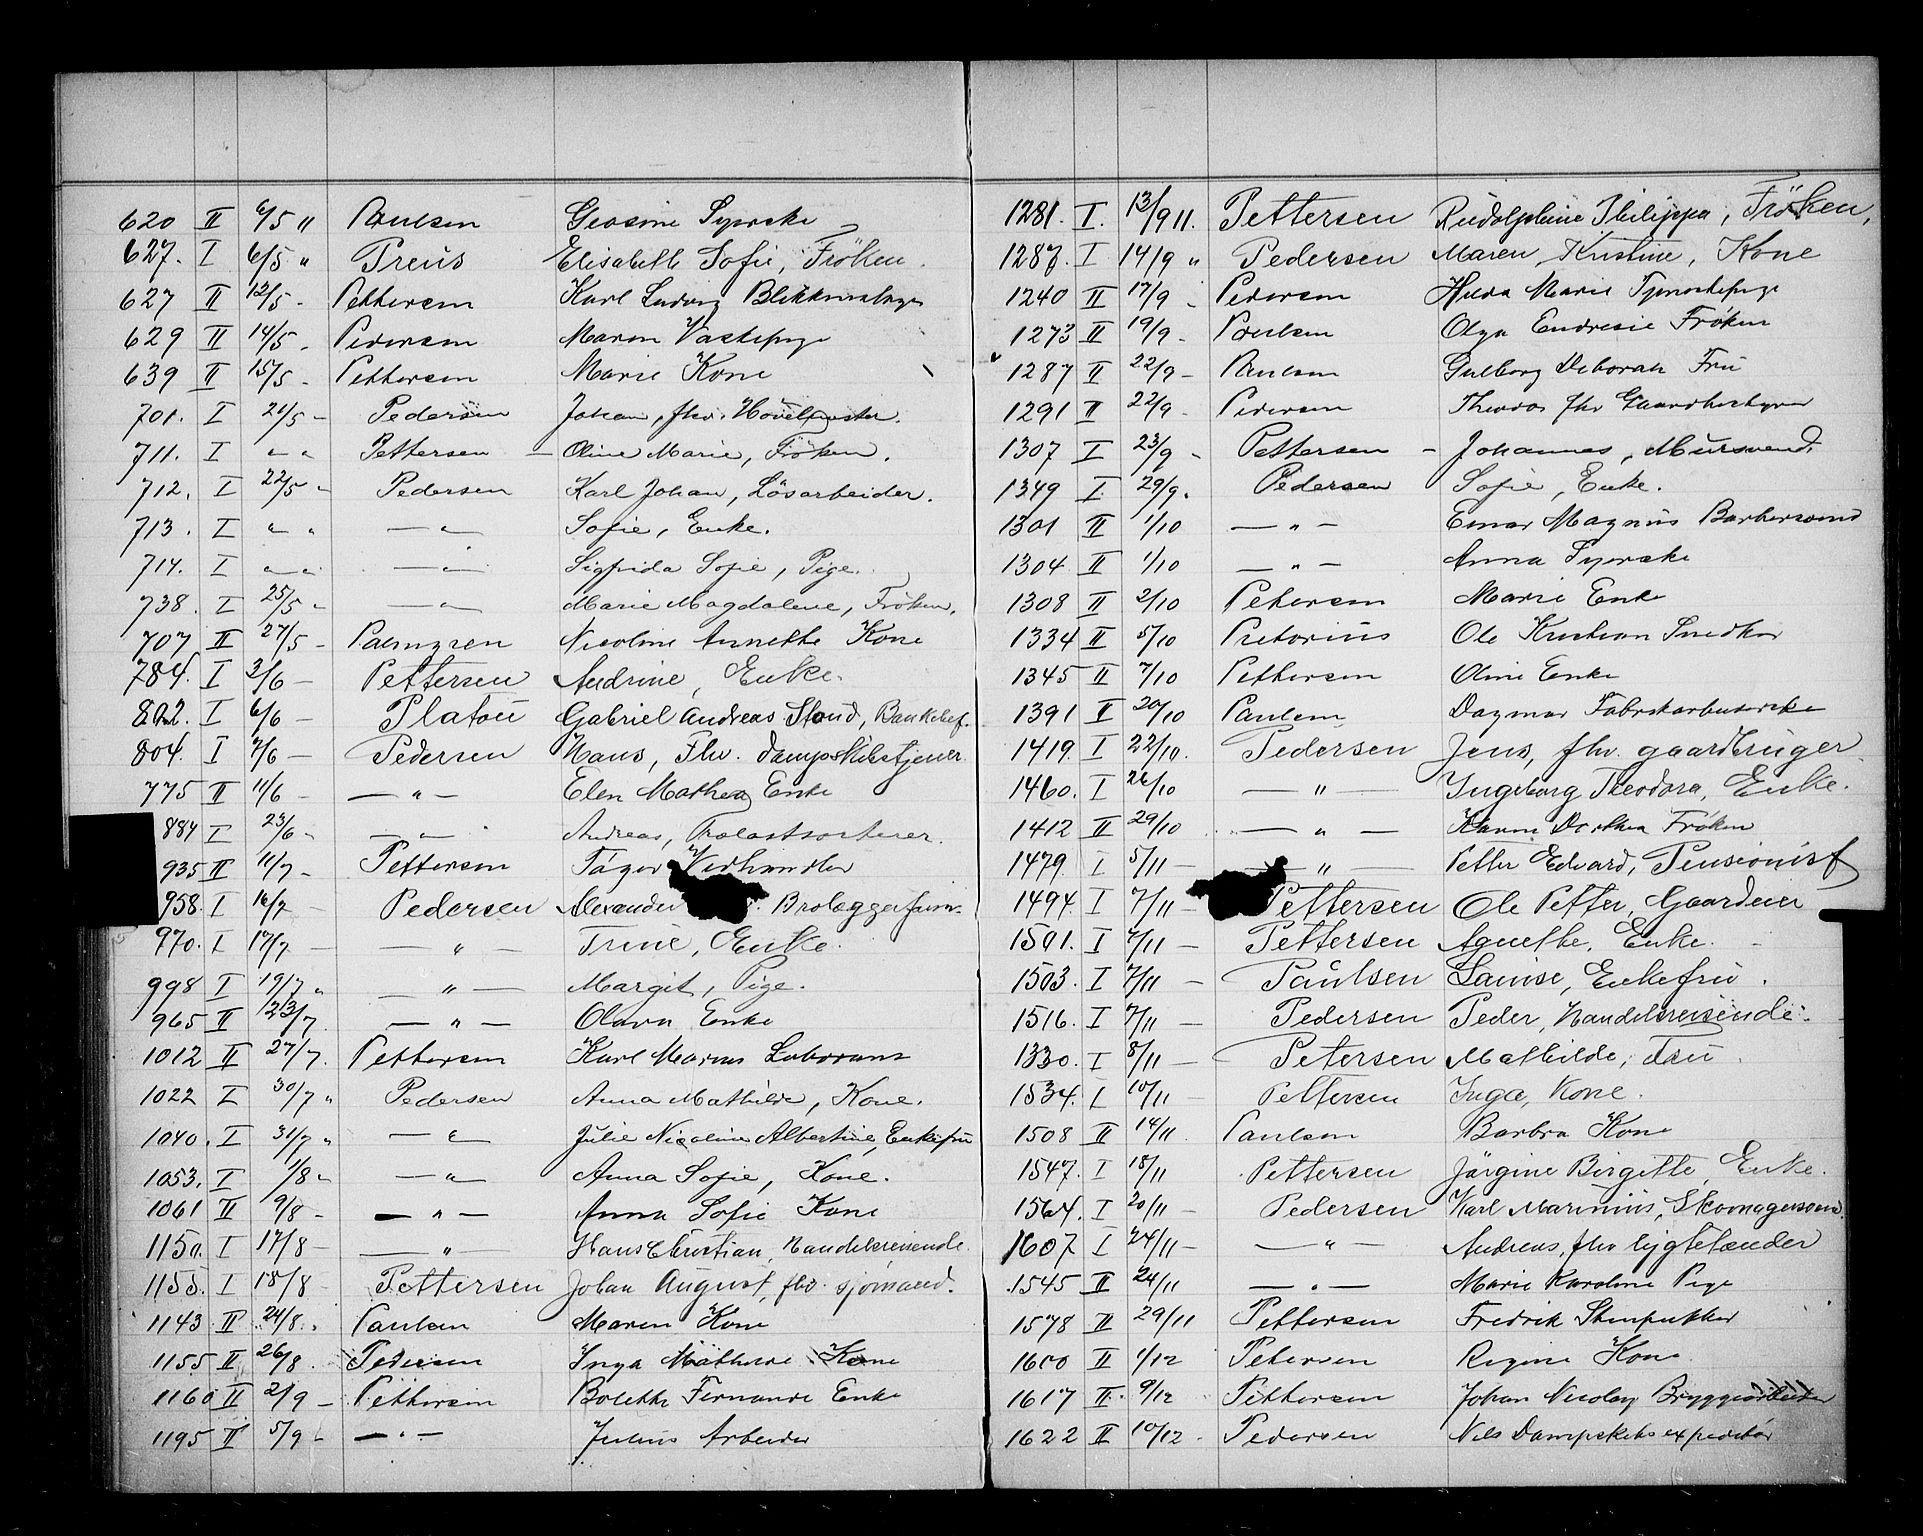 620 II 6/5 " Paulsen Geosine Syerske
627. I 6/5 " Preus Elisabeth Sofie, Fröken.
627 II 12/5 - Pettersen Karl Ludvig Blikkenslager
629 II 14/5 - Pedersen Maren Vaskepige
639 II 15/5 - Pettersen Marie Kone
701. I 21/5 - Pedersen Johan, fhv.
711. I " " Pettersen - Oline Marie, Fröken.
712. I 22/5 - Pedersen Karl Johan, Lösarbeider.
713. I " " — " — Sofie, Enke.
714. I " " — " — Sigfrida Sofie, Pige.
738. I 25/5 " — " — Marie Magdalene, Fröken.
707 II 27/5 - Palmgren Nicoline Annette Kone
784. I 3/6 — Pettersen Andrine, Enke.
802. I 6/6 — Platou Gabriel Andreas Stoud, Bankchef.
804. I 7/6 — Pedersen Hans, Fhv. Dampskibstjener.
775 II 11/6 - — " — Elen Mathea Enke
884 I 23/6 - — " — Andreas,
935 II 11/7 - Pettersen Vedhandler
958. I 16/7 Pedersen Alexander Brolæggerform.
970. I 17/7 — — " — Trine, Enke.
998 I 19/7 " — " — Margit, Pige.
965 II 23/7. — " — Olava Enke
1012 II 27/7. Pettersen Karl Marius Laborant
1022 I 30/7 " Pedersen Anna Mathilde, Kone.
1040. I 31/7 " — " — Julie Nicoline Albertine, Enkefru
1053. I 1/8 " — " — Anna Sofie, Kone.
1061 II 9/8 - — " — Anna Sofie Kone
1150. I 17/8 — — " — Hans Christian, Handelsreisende.
1155. I 18/8 — Pettersen Johan August, fhv. sjömand.
1143 II 24/8. Paulsen Maren Kone
1155 II 26/8. Pedersen Inga Mathilde Kone
1160 II 2/9 - Pettersen Bolette Fernande Enke
1195 II 5/9 - — " — Julius Arbeider
1281. I. 13/9 11. Pettersen Rudolphine Philippa, Fröken,
1287. I 14/9 " Pedersen Maren Kristine, Kone
1240 II 17/9 - Pedersen Hilda Marie Tjenestepige
1273 II 19/9 - Poulsen Olga Endresie Frøken
1287 II 22/9 - Paulsen Gulborg Deborah Fru
1291 II 22/9 - Pedersen Theodor fhv Gaardbestyrer
1307 I 23/9 - Pettersen - Johannes, Mursvend.
1349 I. 29/9. Pedersen Sofie, Enke.
1301 II 1/10 — " — Einar Magnus Barbersvend
1304 II 1/10 — " — Anna Syerske
1308 II 2/10 Petersen Marie Enke
1334 II 5/10 Pretorius Ole Kristian Snedker
1345 II 7/10 Pettersen Oline Enke
1391 II 20/10 Paulsen Dagmar Fabrikarbeiderske
1419. I 22/10. Pedersen Jens, fhv. gaardbruger
1460. I 26/10 — " — Ingeborg Theodora, Enke.
1412 II 29/10 — " — Karen Dorthea Frøken
1479. I 5/11 — — " — Petter Edvard, Pensionist
1494. I 7/11 — Pettersen Ole Petter, Gaardeier
1501. I 7/11 — Pettersen Agnethe, Enke.
1503. I 7/11 — Paulsen Louise, Enkefru.
1516. I 7/11 — Pedersen Peder, Handelsreisende.
1330. I 8/11 — Petersen Mathilde, Fru.
1534. I 10/11 — Pettersen Inga, Kone.
1508 II 14/11. Paulsen Barbra Kone
1547. I 18/11 Pettersen Jörgine Birgitte, Enke.
1564. I 20/11 — Pedersen Karl Marinius, Skomagersvend.
1607 I 24/11 — — " — Andreas, fhv lygtetænder
1545 II 24/11 — " — Marie Karoline Pige
1578 II 29/11 Pettersen Fredrik Stenpukker
1600 II 1/12 Petersen Regine Kone
1617 II. 9/12 Pettersen Johan Nicolay Bryggearbeider
1622 II 10/12 - Pedersen Nils Dampskibsexpeditør